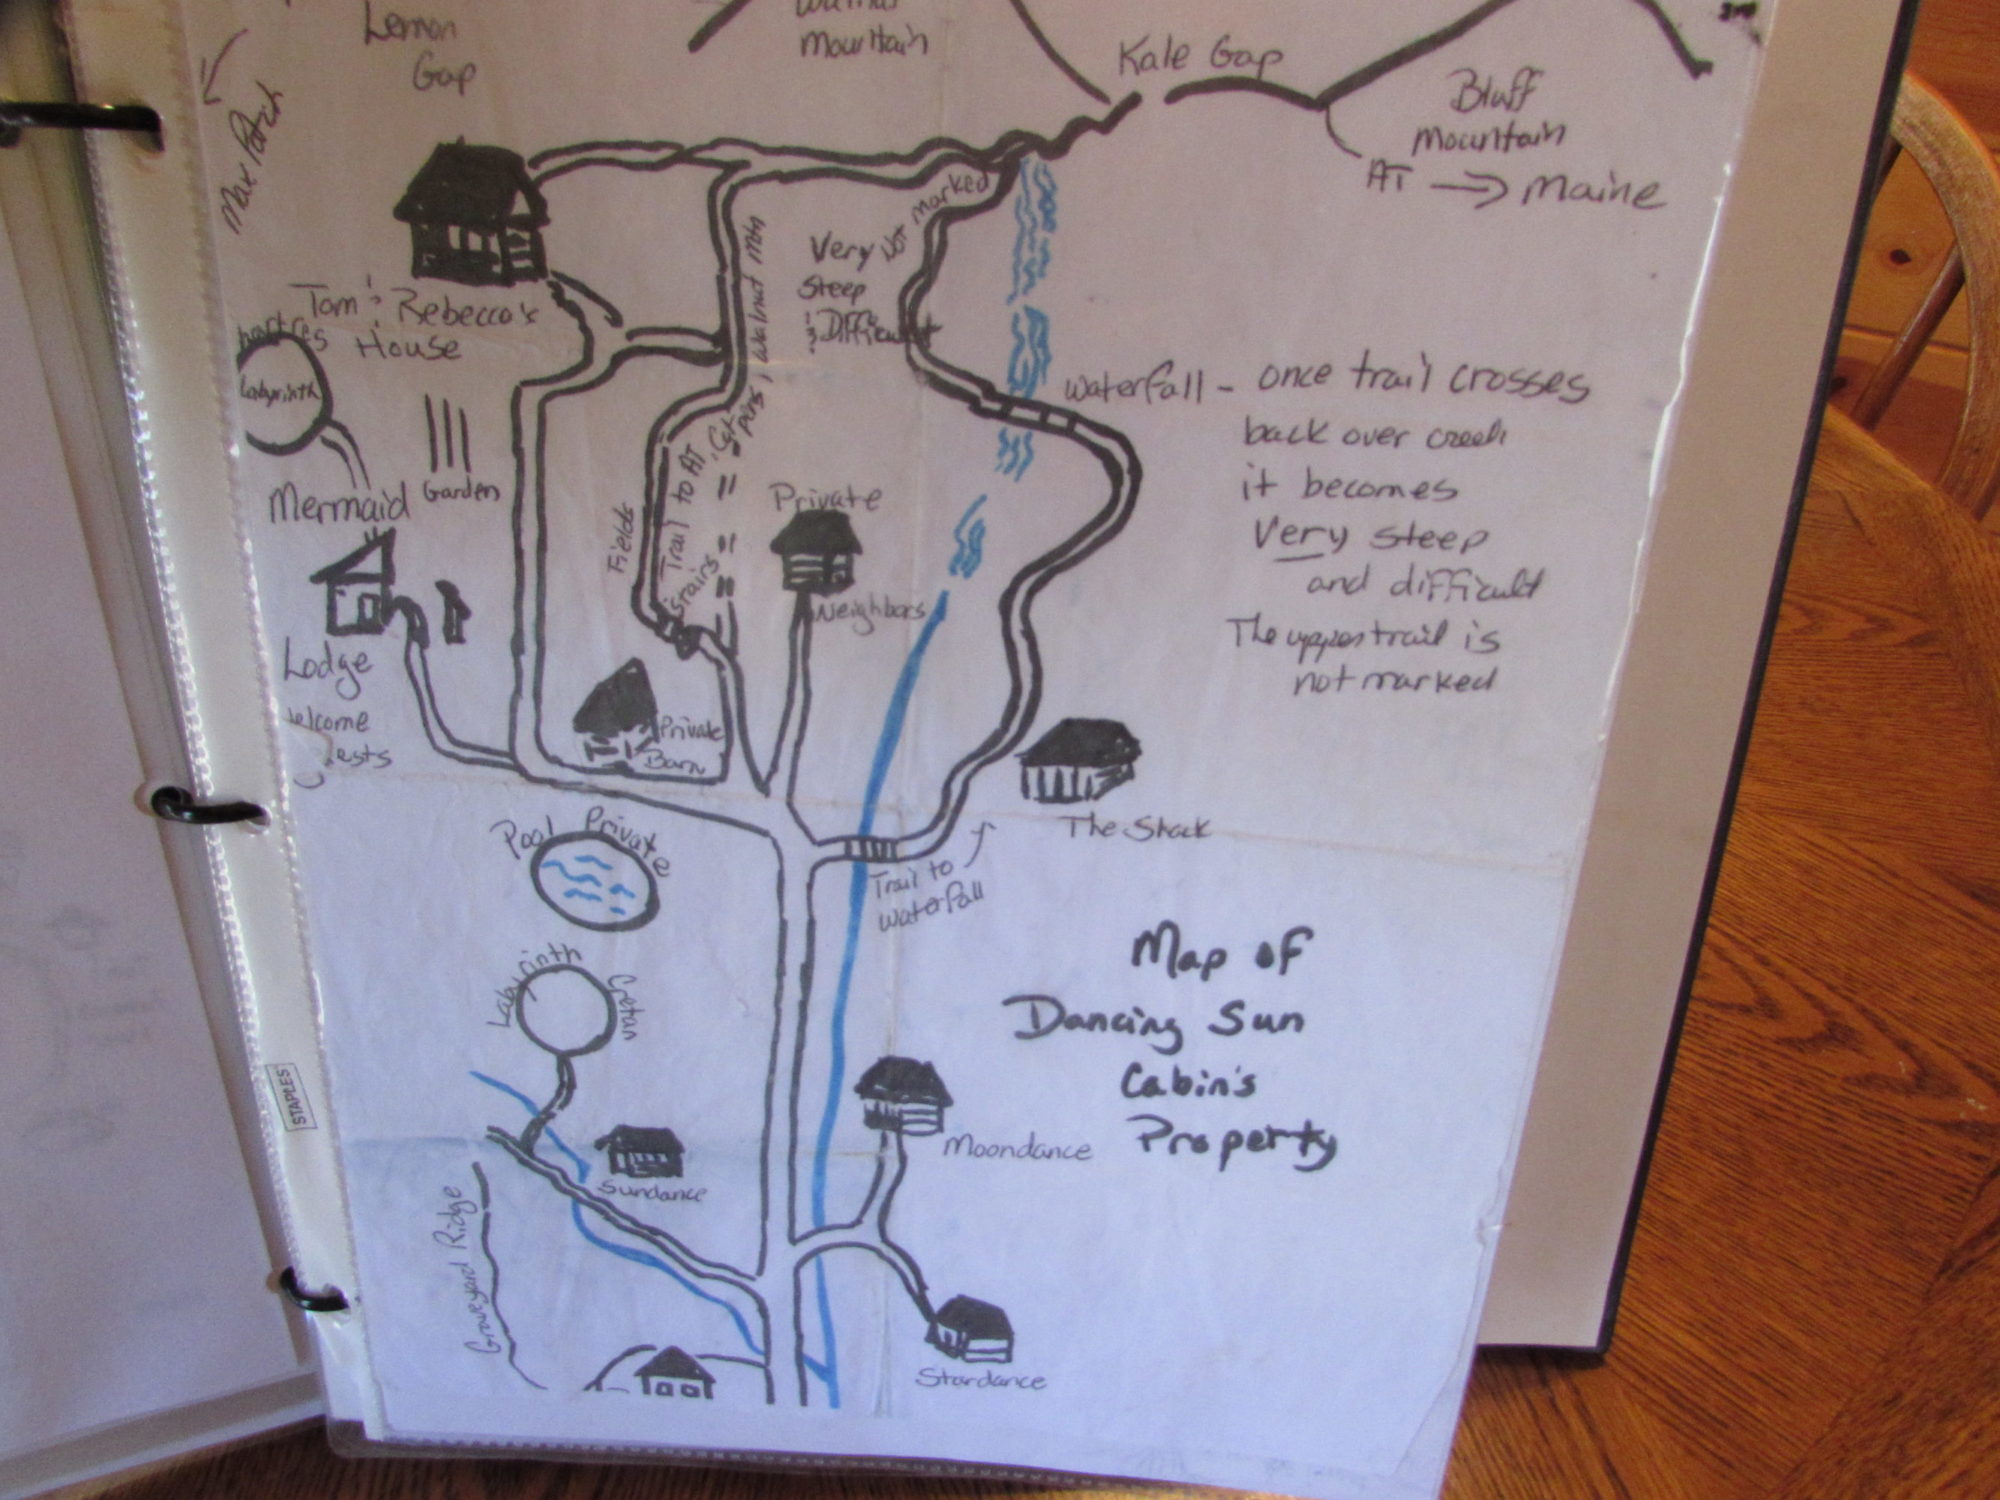 Lemon
Gap
Mountain
Kale Gap
Bluff
Mountain
AT → Maine
Max Patch
Not Marked
Very
Steep
& Difficult
Tom & Rebecca's
House
Labyrinth
Garden
Mermaid
Lodge
Fields
Trail to AT, Cat pens, Walnut Mtn
Stairs
Private
Neighbors
Waterfall - once trail crosses
back over creek
it becomes
Very steep
and difficult
The upper trail is
not marked
Private
Barn
The Shack
Trail to
waterfall
Pool Private
Labyrinth
Cretan
Map of
Dancing Sun
Cabin's
Property
Moondance
Sundance
Graveyard Ridge
Stardance
STAPLES